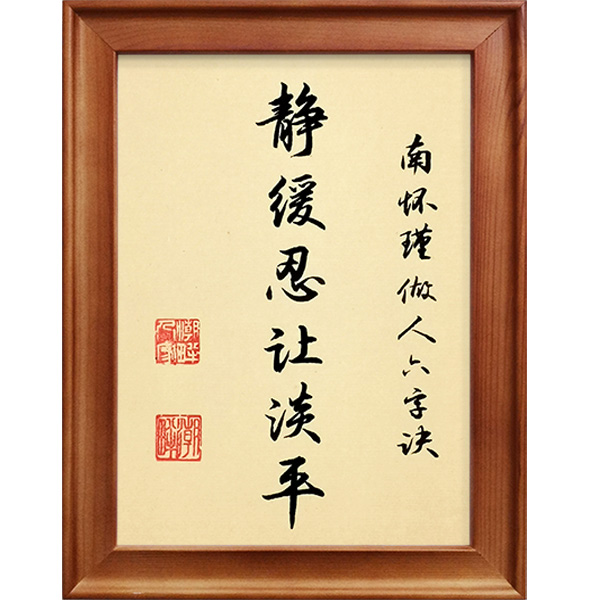 南怀瑾做人六字诀
静缓忍让淡平